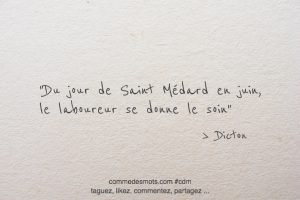 "Du jour de Saint Médard en juin,
le laboureur se donne le soin"
> Dicton
commedesmots.com #cdm
taguez, likez, commentez, partagez ...